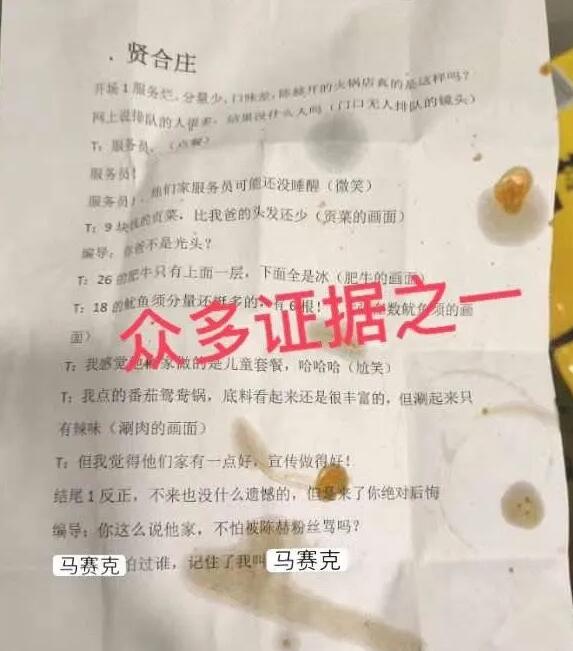 贤合庄
开场 1 服务烂,分量少,口味差,陈赫开的火锅店真的是这样吗?
网上说排队的人很多,结果没什么人吗(门口无人排队的镜头)
T:服务员,(点餐)
服务员!
服务员!他们家服务员可能还没睡醒(微笑)
T:9 块钱的贡菜,比我爸的头发还少(贡菜的画面)
编导:你爸不是光头?
T:26 的肥牛只有上面一层,下面全是冰(肥牛的画面)
T:18 的鱿鱼须分量还挺多的,有 6 根!数鱿鱼须的画
面)
众多证据之一
T:我感觉他们家做的是儿童套餐,哈哈哈(尬笑)
T:我点的番茄鸳鸯锅,底料看起来还是很丰富的,但涮起来只
有辣味(涮肉的画面)
T:但我觉得他们家有一点好,宣传做得好!
结尾 1 反正,不来也没什么遗憾的,但是来了你绝对后悔
编导:你这么说他家,不怕被陈赫粉丝骂吗?
马赛克 怕过谁,记住了我叫 马赛克